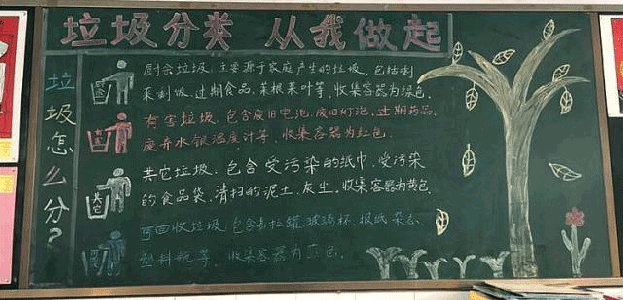 垃圾分类 从我做起
垃圾怎么分?
厨余垃圾、主要源于家庭产生的垃圾、包括剩
菜剩饭、过期食品、菜根菜叶等、收集容器为绿色.
有害垃圾、包含废旧电池、废旧灯泡、过期药品、
废弃水银温度计等、收集容器为红色.
其它垃圾、包含受污染的纸巾、受污染
的食品袋、清扫的泥土、灰尘、收集容器为黄色.
其它
可回收垃圾、包含易拉罐、玻璃杯、报纸、杂志、
塑料瓶等、收集容器为蓝色.